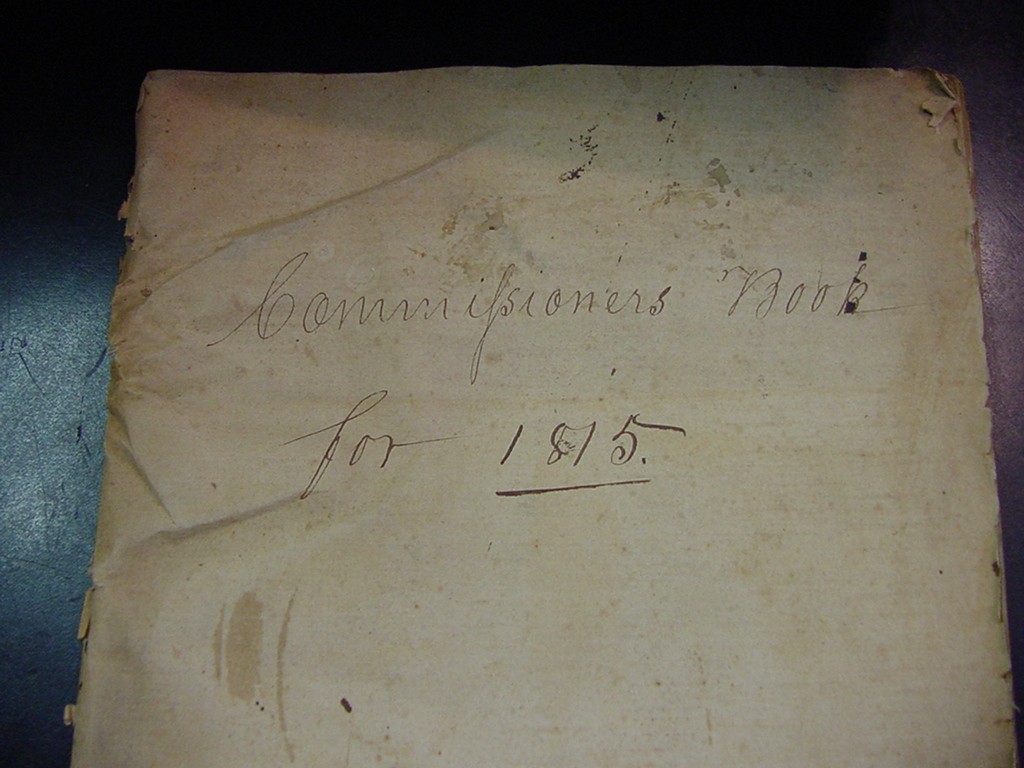 Commiſsioners Book
for 1815.